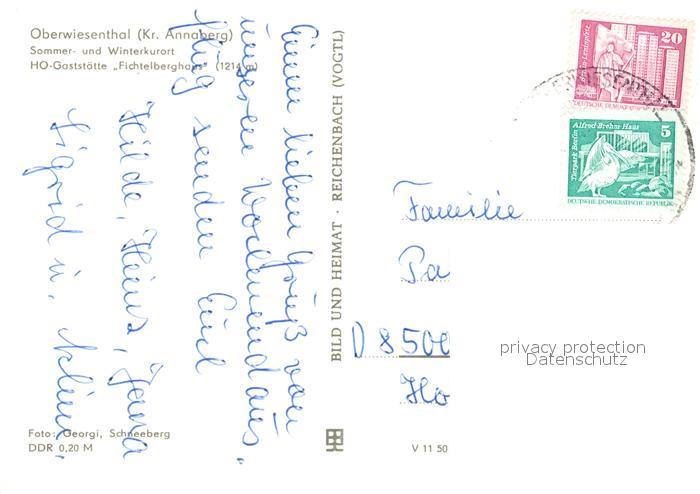 Oberwiesenthal (Kr. Annaberg)
Sommer- und Winterkurort
HO-Gaststätte „Fichtelberghaus" (1214 m)
Einen lieben Gruß von
unserem Wochenendaus-
flug senden Euch
Hilde, Heinz, Jana
Sigrid u.
BILD UND HEIMAT · REICHENBACH (VOGTL)
Foto: Georgi, Schneeberg
DDR 0,20 M
V 11 50
20
Berlin-Leninplatz
DEUTSCHE DEMOKRATISCHE
Alfred-Brehm-Haus 5
Tierpark Berlin
DEUTSCHE DEMOKRATISCHE REPUBLIK
Familie
Pa
D 8500
Ho
privacy protection
Datenschutz